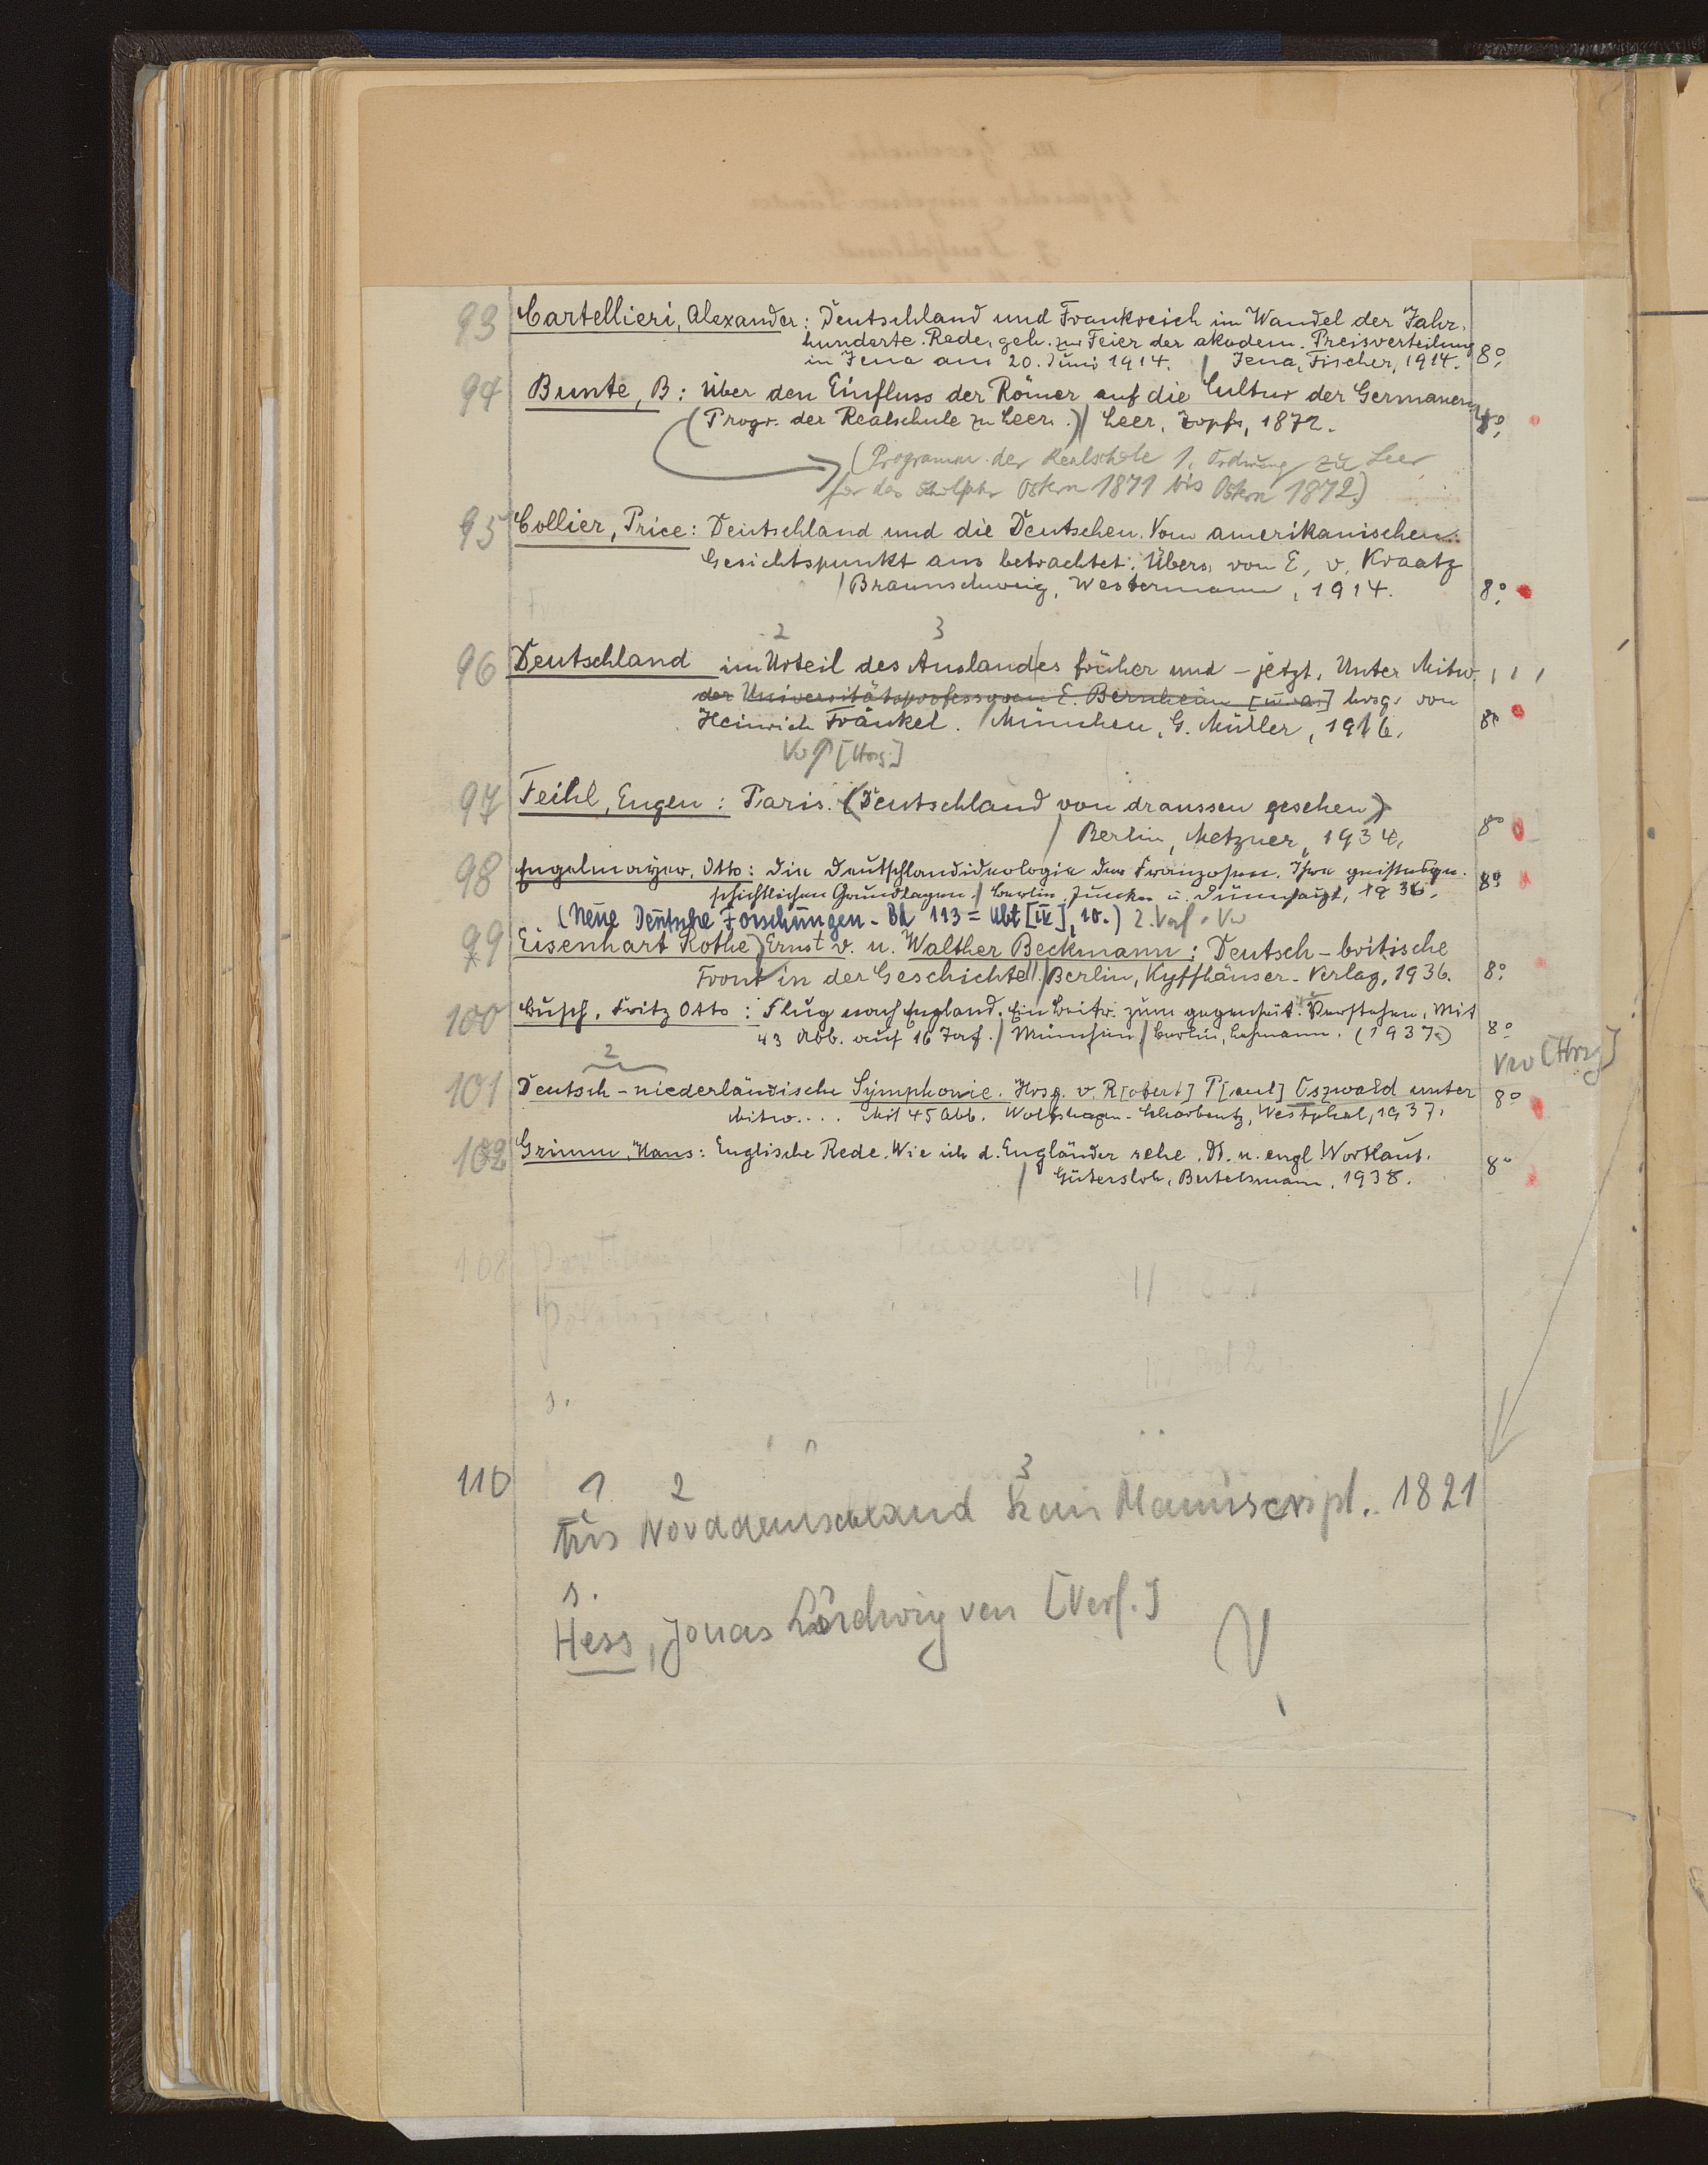 93 Cartellieri, Alexander: Deutschland und Frankreich im Wandel der Jahr-
hunderte. Rede, geh. zur Feier der akadem. Preisverteilung
in Jena am 20. Juni 1914. / Jena, Fischer, 1914. 8°.
94 Bunte, B: Über den Einfluss der Römer auf die Cultur der Germanen
(Progr. der Realschule zu Leer.) / Leer, Zopfs, 1872.
(Programm der Realschule 1. Ordnung zu Leer
für das Schuljahr Ostern 1871 bis Ostern 1872)
95 Collier, Price: Deutschland und die Deutschen. Vom amerikanischen
Gesichtspunkt aus betrachtet. Übers. von E. v. Kraatz
/ Braunschweig, Westermann, 1914. 8°.
2 3
96 Deutschland im Urteil des Auslandes früher und - jetzt. Unter Mitw.
der Universitätsprofessoren E. Bernheim [u. a.] hrsg. von
Heinrich Fränkel. / München, G. Müller, 1916. 8°
Vw [Hrsg.]
97 Feihl, Eugen: Paris. (Deutschland von draussen gesehen)
/ Berlin, Metzner, 1934. 8°
98 Engelmayer, Otto: Die Deutschlandideologie der Franzosen. Ihre geistesge-
schichtlichen Grundlagen. / Berlin, Junker u. Dünnhaupt, 1936. 8°
(Neue Deutsche Forschungen. Bd 113 = Abt [IV], 10.) 2. Verf. Vw
99 Eisenhart Rothe, Ernst v. u. Walther Beckmann: Deutsch-britische
Front in der Geschichte!! / Berlin, Kyffhäuser-Verlag, 1936. 8°.
100 Busch, Fritz Otto: Flug nach England. Ein Beitr. zum gegenseit. Verstehen. Mit
43 Abb. auf 16 Taf. / München / Berlin, Lehmann. (1937.) 8°
2 Vw [Hrsg]
101 Deutsch-niederländische Symphonie. Hrsg. v. R[obert] P[aul] Oszwald unter
Mitw.... Mit 45 Abb. Wolfshagen-Scharbeutz, Westphal, 1937. 8°
102 Grimm, Hans: Englische Rede. Wie ich d. Engländer sehe. Dt. u. engl Wortlaut.
/ Gütersloh, Bertelsmann, 1938. 8°
108 Theodor
s.
110 1 2 3
Aus Norddeutschland kein Manuscript. 1821
s.
Hess, Jonas Ludwig von [Verf.]
V